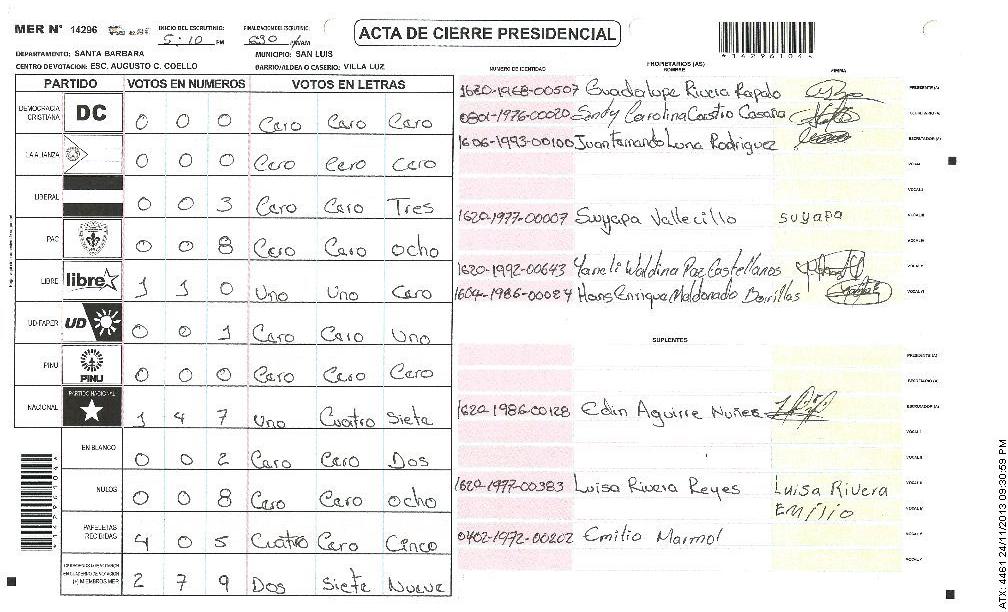 MER N° 14296
INICIO DEL ESCRUTINIO:
5:10 PM
FINALIZACION DEL ESCRUTINIO:
630 PM/AM
ACTA DE CIERRE PRESIDENCIAL
*14296104*
DEPARTAMENTO: SANTA BARBARA
MUNICIPIO: SAN LUIS
CENTRO DE VOTACION: ESC. AUGUSTO C. COELLO
BARRIO/ALDEA O CASERIO: VILLA LUZ
PARTIDO VOTOS EN NUMEROS VOTOS EN LETRAS
DEMOCRACIA CRISTIANA DC 0 0 0 Cero Cero Cero
LA ALIANZA 0 0 0 Cero Cero Cero
LIBERAL 0 0 3 Cero Cero Tres
PAC 0 0 8 Cero Cero ocho
LIBRE libre 1 1 0 Uno Uno Cero
UD-FAPER UD 0 0 1 Cero Cero Uno
PINU PINU 0 0 0 Cero Cero Cero
NACIONAL PARTIDO NACIONAL 1 4 7 Uno Cuatro Siete
EN BLANCO 0 0 2 Cero Cero Dos
NULOS 0 0 8 Cero Cero ocho
PAPELETAS RECIBIDAS 4 0 5 Cuatro Cero Cinco
2 7 9 Dos Siete Nueve
NUMERO DE IDENTIDAD
PROPIETARIOS (AS)
NOMBRE
FIRMA
1620-1968-00507 Guadalupe Rivera Rapalo PRESIDENTE (A)
0801-1976-00020 Sandy Carolina Castro Casaña SECRETARIO (A)
1606-1993-00100 Juan Fernando Luna Rodriguez ESCRUTADOR (A)
VOCAL I
VOCAL II
1620-1977-00007 Suyapa Vallecillo suyapa VOCAL III
VOCAL IV
1620-1992-00643 Yaneli Waldina Paz Castellanos VOCAL V
1604-1986-00084 Hans Enrique Maldonado Barillas VOCAL VI
SUPLENTES
PRESIDENTE (A)
SECRETARIO (A)
1620-1986-00128 Edin Aguirre Nuñes ESCRUTADOR (A)
VOCAL I
VOCAL II
1620-1977-00383 Luisa Rivera Reyes Luisa Rivera VOCAL III
Emilio VOCAL IV
0402-1972-00202 Emilio Marmol VOCAL V
VOCAL VI
ATX: 4461 24/11/2013 09:30:59 PM